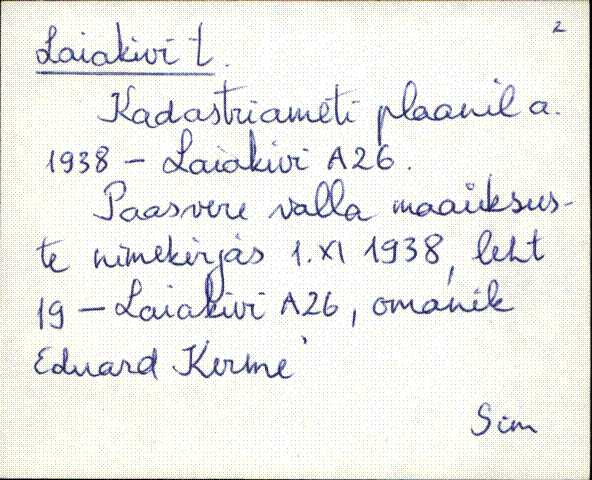 2
Laiakivi t.
Kadastriameti plaanil a.
1938 – Laiakivi A26.
Paasvere valla maaüksus-
te nimekirjas 1.XI 1938, leht
19 – Laiakivi A26, omanik
Eduard Kerme
Sim